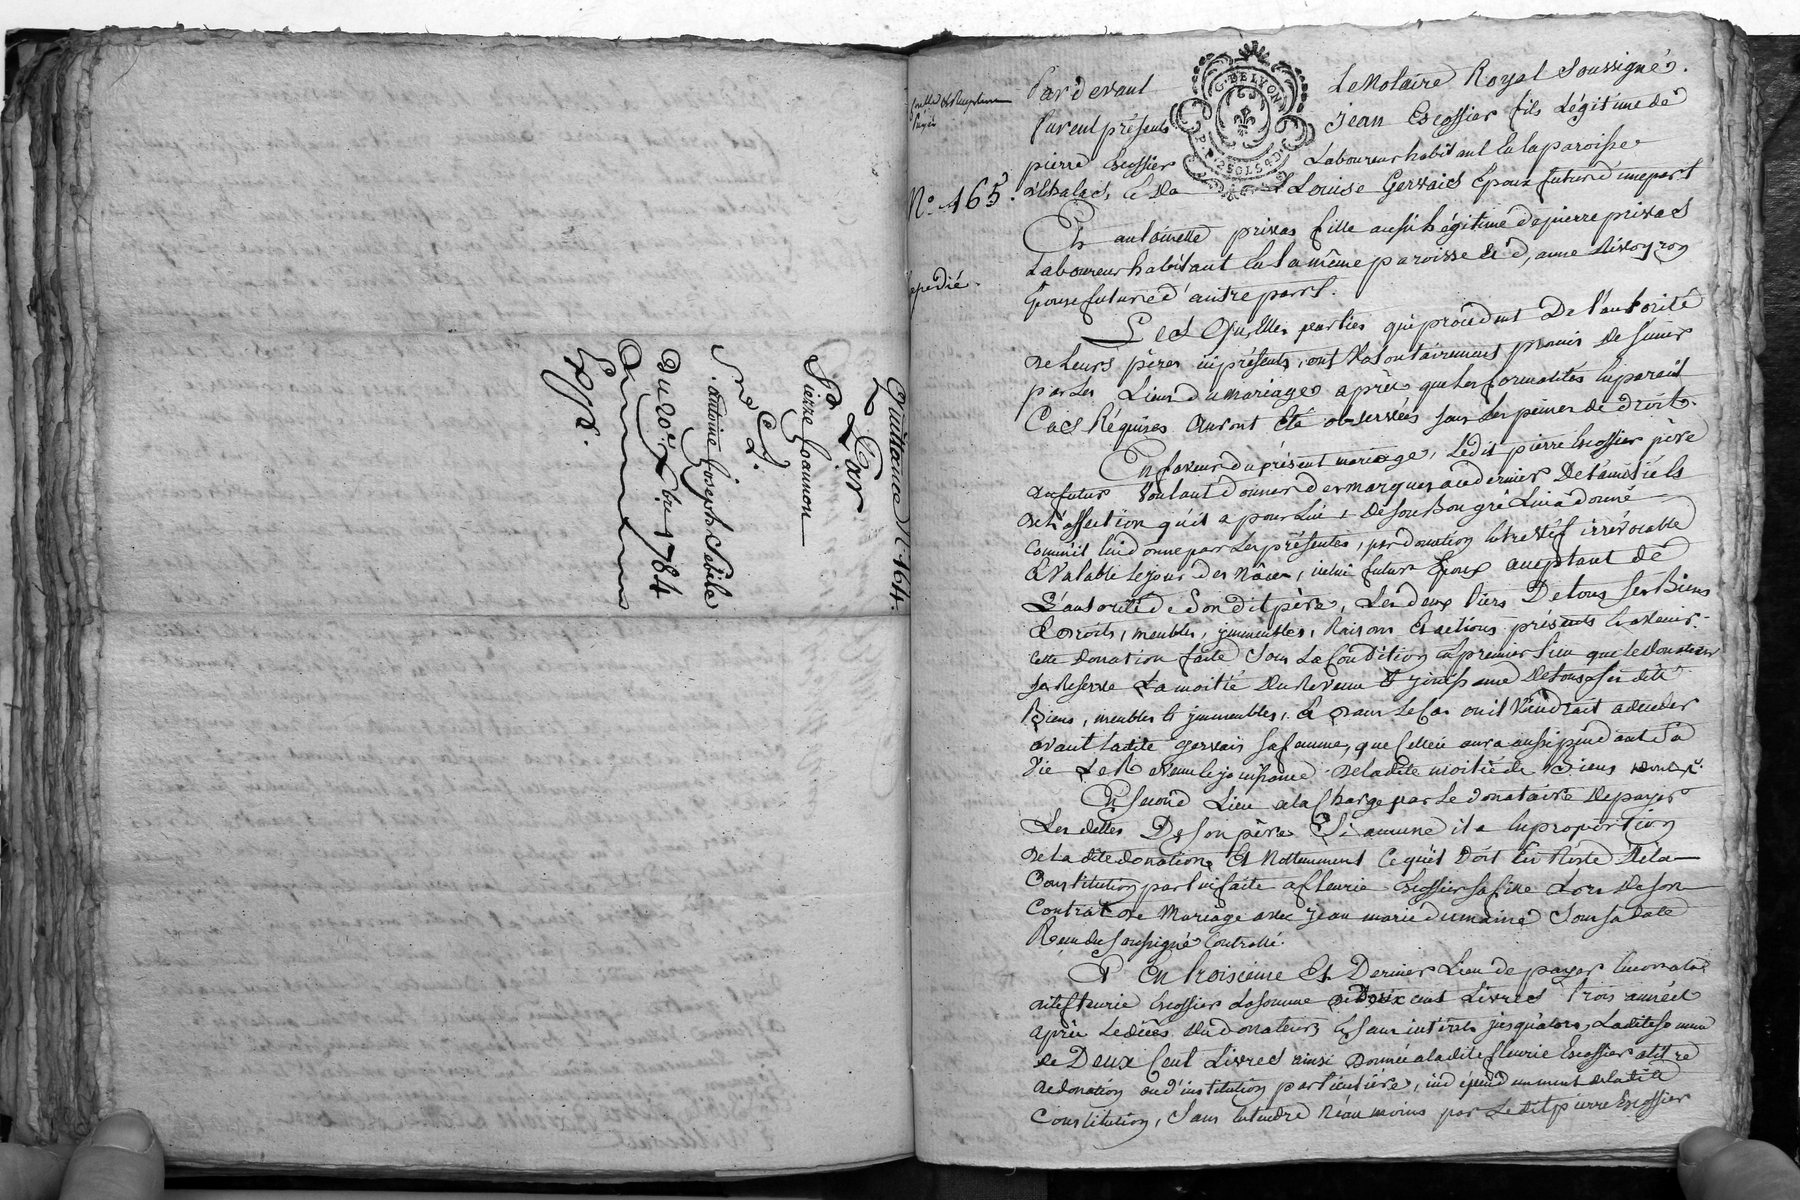 Quittance N. 164.
Par
Pierre Joannon
à
Sr
antoine joseph Sabile
Du 20e. Xbre 1784
Exp.
Controllé et Receptum
Payés
No. 465.
expedié.
G. BELYON
P.P. 2 SOLS 4 D.
Pardevant Le Notaire Royal Soussigné.
furent présents jean Escossier fils légitime de
pierre Escossier Laboureur habitant En la paroisse
et de Louise Gervais Epoux futur d'une part
Et antoinette privas fille aussi Légitime de pierre privas
Laboureur habitant En la même paroisse Et d'anne
Epouse future d'autre part.
Lesquelles parties qui procedent De l'autorité
de Leurs pères ici présents, ont Volontairement promis De s'unir
par les Liens du mariage après que les formalités En pareil
Cas Réquises auront été observées sous les peines de droit.
En faveur du présent mariage, Ledit pierre Escossier père
du futur Voulant donner des marques au dernier De l'amitié Et
de l'affection qu'il a pour Lui, De son Bon gré Lui a donné
comme il lui donne par Les présentes, par donation Entre Vifs irrévocable
Et Valable le jour des Nôces, icelui futur Epoux acceptant de
L'autorité de Son dit père, Les deux tiers De tous Ses Biens
Et Droits, meubles, immeubles, Raisons Et actions présents Et avenir.
Cette Donation faite Sous La Condition En premier Lieu que le Donateur
se Reserve La moitié du Revenu Et jouissance De tous ses dits
Biens, meubles Et immeubles, Et Dans Le Cas où il Viendrait a decéder
avant Ladite gervais sa femme, que Celle ci aura aussi pendant Sa
Vie Le Revenu Et jouissance De la dite moitié de Biens
En second Lieu a la Charge par Le donataire De payer
Les dettes De Son père Si aucune il a En proportion
De La dite donation Et Nottamment Ce qu'il Doit En Reste De la
Constitution par Lui faite a fleurie Escossier sa fille Lors De son
Contrat De Mariage avec jean marie dumaine Sous sa date
Reçu du Soussigné Controllé.
Et En troisieme Et Dernier Lieu de payer
dite fleurie Escossier La somme de Deux cent Livres trois années
après Le déces du donateur Et Sans intérets jusqu'alors, La dite somme
de Deux Cent Livres ainsi Donnée a la dite fleurie Escossier a titre
de donation ou d'institution particulière, indépendamment de la dite
Constitution, Sans Entendre Néanmoins par Le dit pierre Escossier